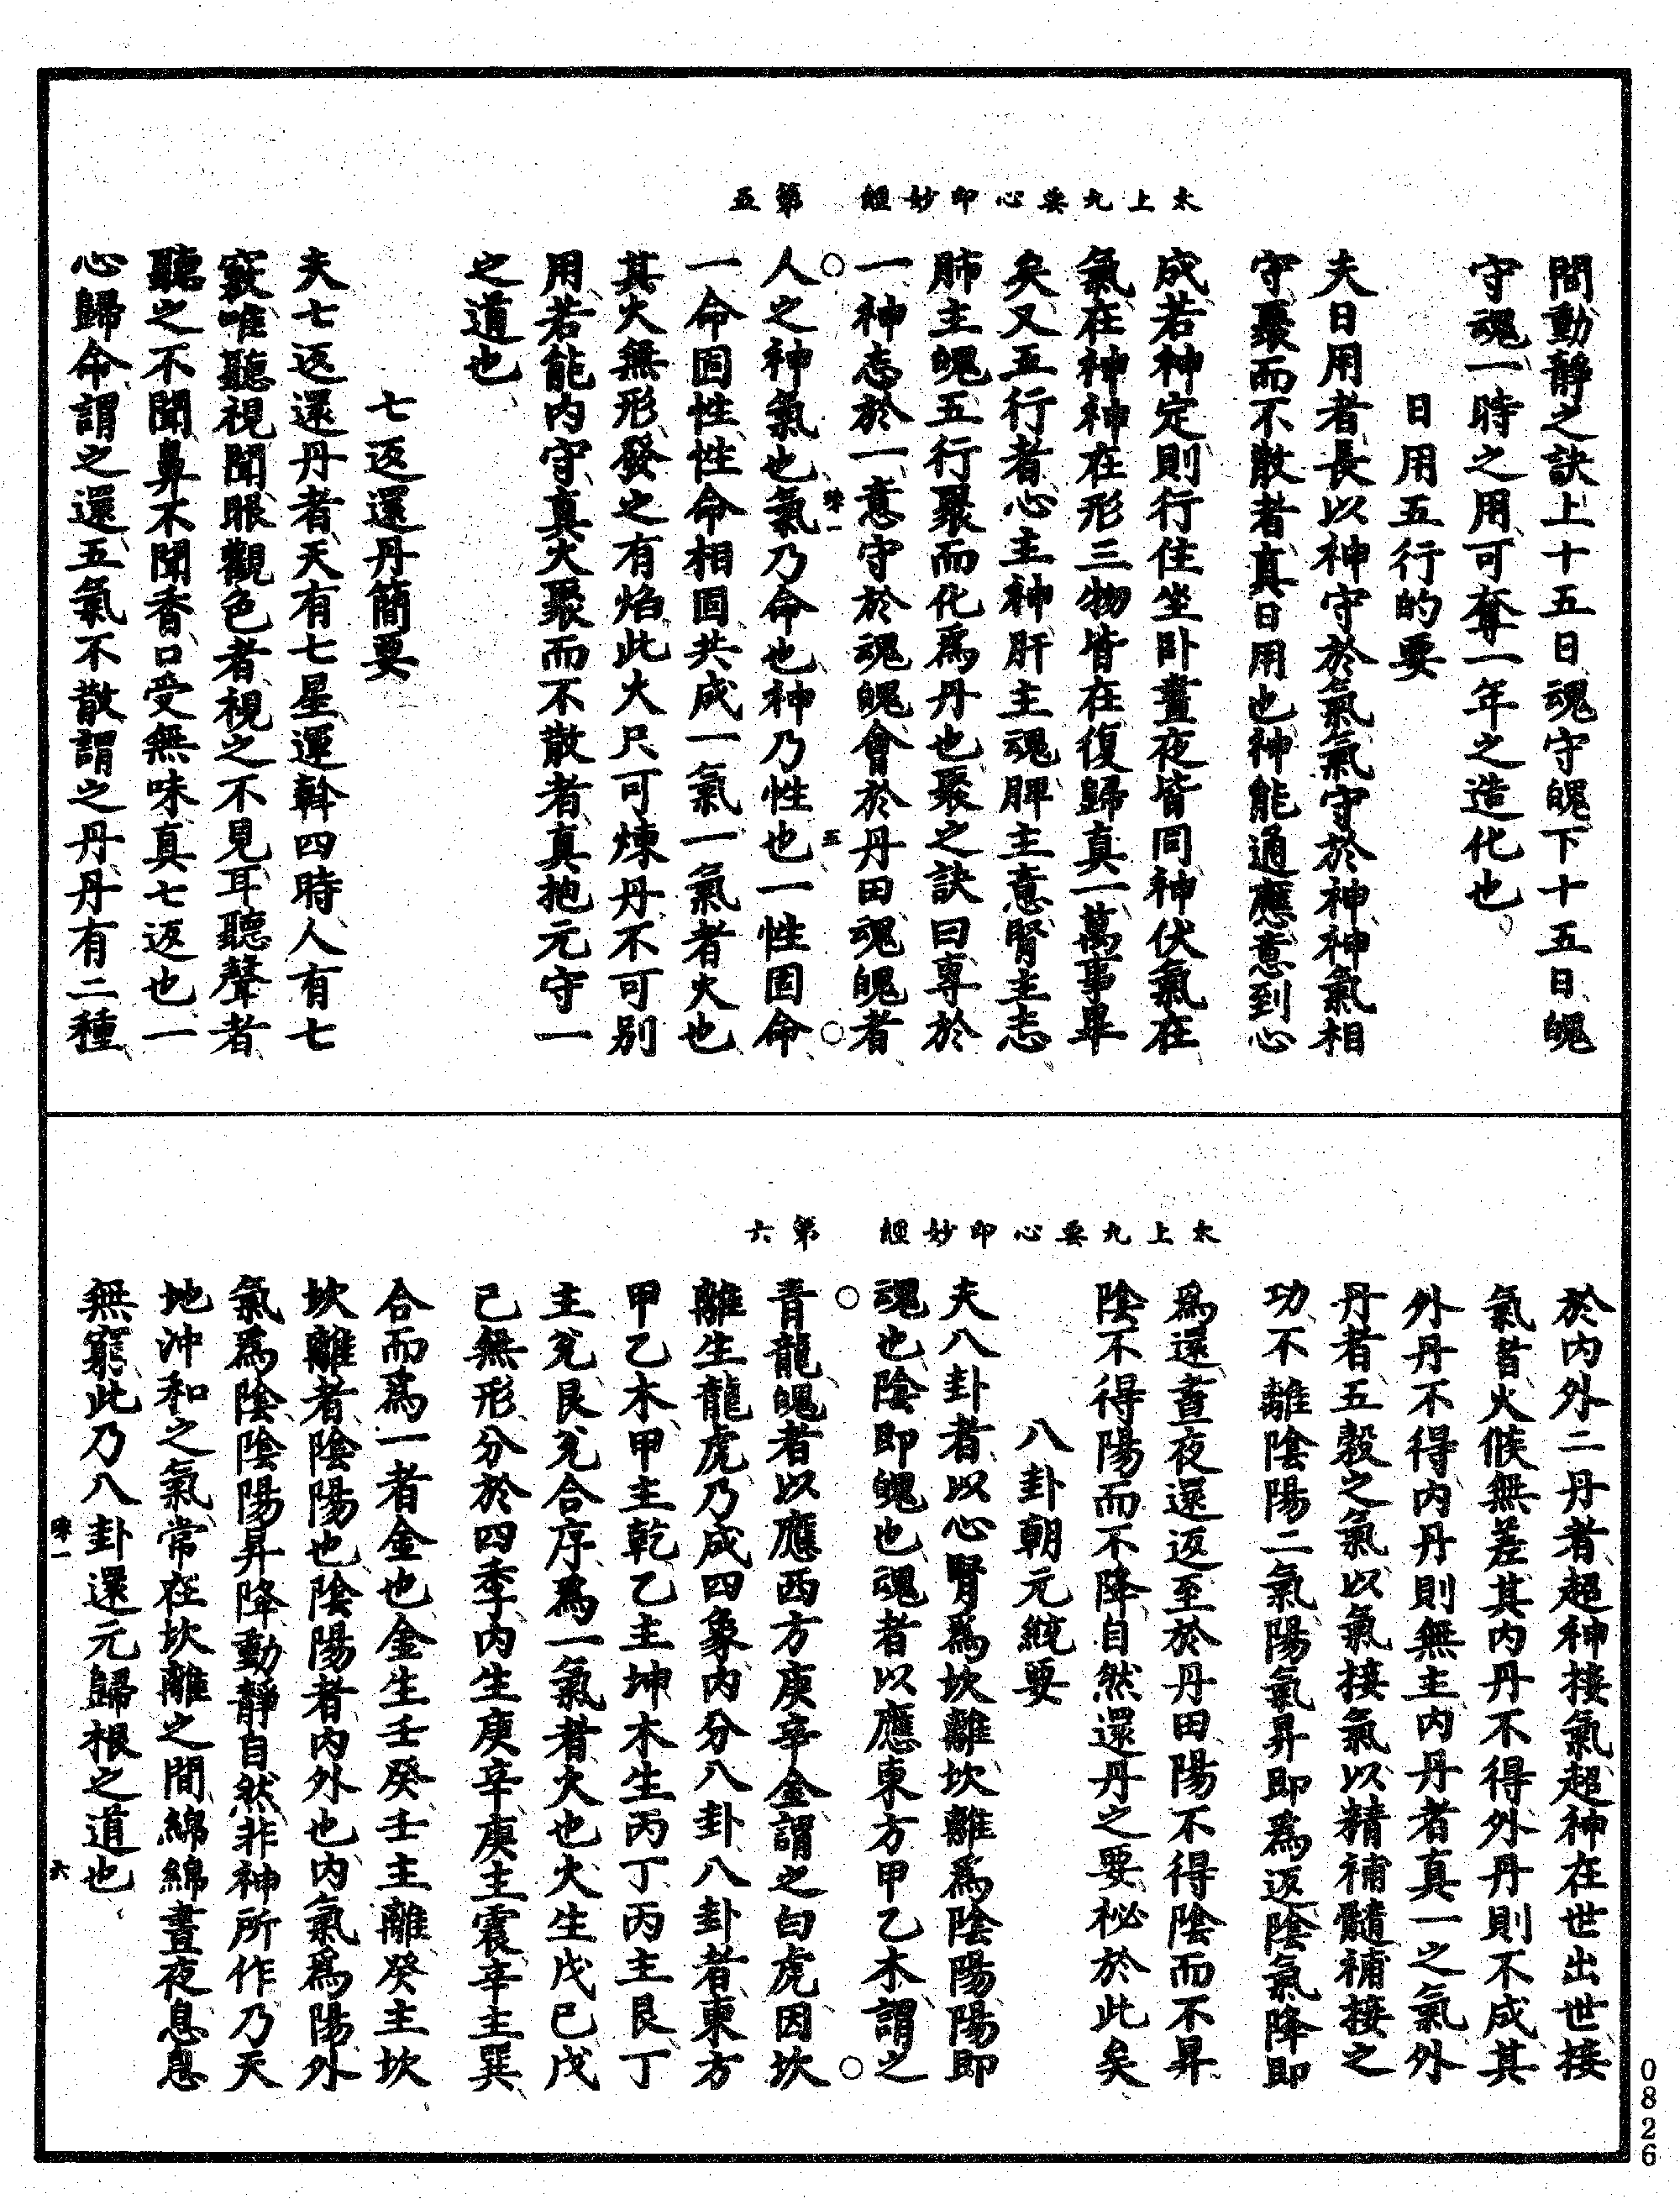 太上九要心印妙經　第五
間動靜之訣上十五日魂守魄下十五日魄
守魂一時之用可奪一年之造化也
日用五行的要
夫日用者長以神守於氣氣守於神神氣相
守聚而不散者真日用也神能通應意到心
成若神定則行住坐卧晝夜皆同神伏氣在
氣在神神在形三物皆在復歸真一萬事畢
矣又五行者心主神肝主魂脾主意腎主志
肺主魄五行聚而化爲丹也聚之訣曰專於
一神志於一意守於魂魄會於丹田魂魄者
味一　五
人之神氣也氣乃命也神乃性也一性固命
一命固性性命相固共成一氣一氣者火也
其火無形發之有焰此火只可煉丹不可别
用若能内守真火聚而不散者真抱元守一
之道也
七返還丹簡要
夫七返還丹者天有七星運斡四時人有七
竅唯聽視聞眼觀色者視之不見耳聽聲者
聽之不聞鼻不聞香口受無味真七返也一
心歸命謂之還五氣不散謂之丹丹有二種
太上九要心印妙經　第六
於内外二丹者超神接氣超神在世出世接
氣者火候無差其内丹不得外丹則不成其
外丹不得内丹則無主内丹者真一之氣外
丹者五穀之氣以氣接氣以精補髓補接之
功不離陰陽二氣陽氣昇即爲返陰氣降即
爲還晝夜還返至於丹田陽不得陰而不昇
陰不得陽而不降自然還丹之要祕於此矣
八卦朝元統要
夫八卦者以心腎爲坎離坎離爲陰陽陽即
魂也陰即魄也魂者以應東方甲乙木謂之
青龍魄者以應西方庚辛金謂之白虎因坎
離生龍虎乃成四象内分八卦八卦者東方
甲乙木甲主乾乙主坤木生丙丁丙主艮丁
主兑艮兑合序爲一氣者火也火生戊己戊
己無形分於四季内生庚辛庚主震辛主巽
合而爲一者金也金生壬癸壬主離癸主坎
坎離者陰陽也陰陽者内外也内氣爲陽外
氣爲陰陰陽昇降動靜自然非神所作乃天
地沖和之氣常在坎離之間綿綿晝夜息息
無窮此乃八卦還元歸根之道也
味一　六
0826